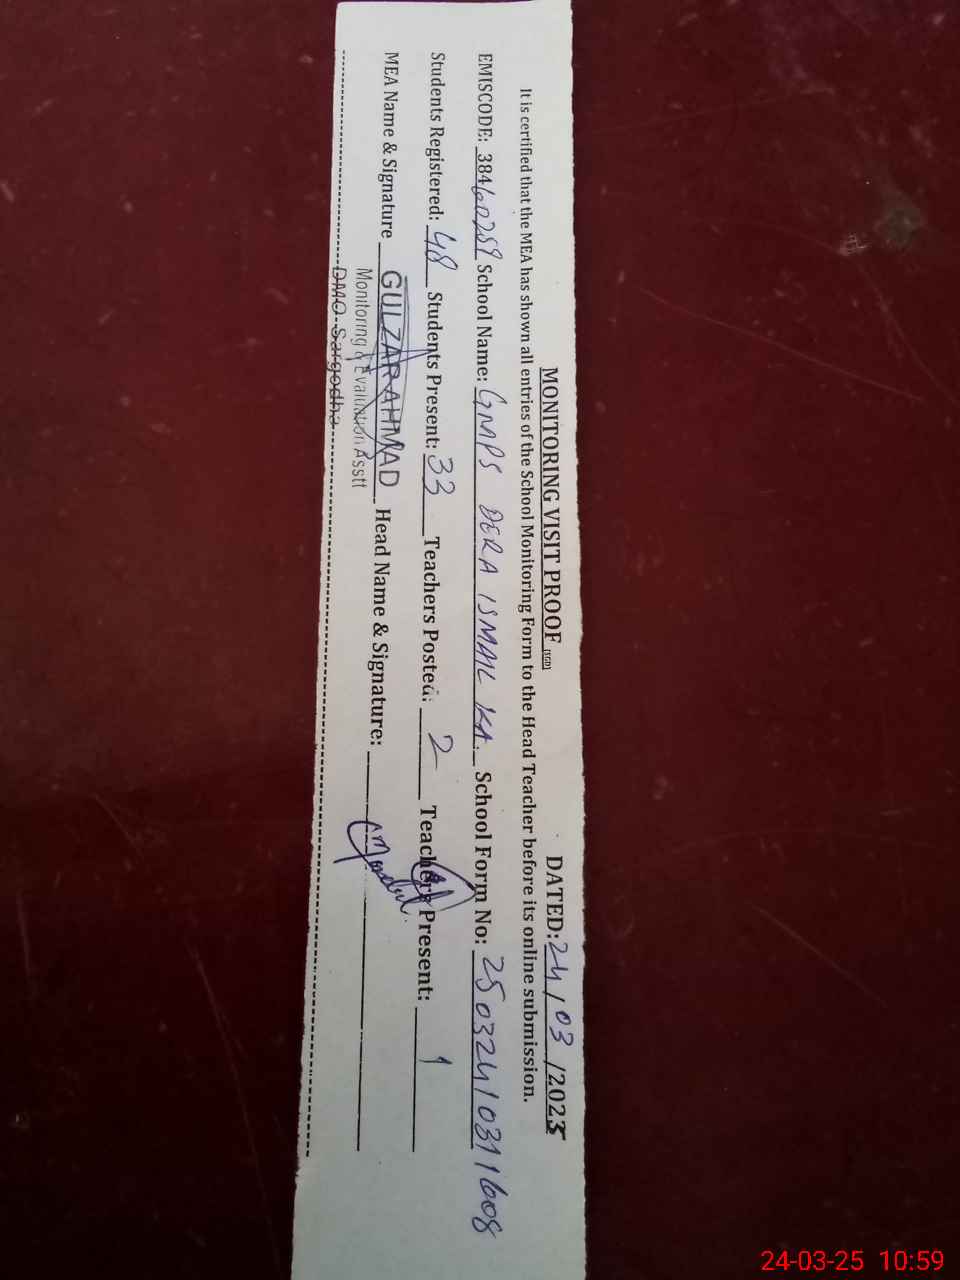 MONITORING VISIT PROOF (SGD) DATED: 24/03/2025
It is certified that the MEA has shown all entries of the School Monitoring Form to the Head Teacher before its online submission.
EMISCODE: 38460259 School Name: GMPS DERA ISMAIL KA. School Form No: 25032410311608
Students Registered: 48 Students Present: 33 Teachers Posted: 2 Teachers Present: 1
MEA Name & Signature GULZAR AHMAD Head Name & Signature:
Monitoring & Evaluation Asstt
DMO Sargodha
24-03-25 10:59